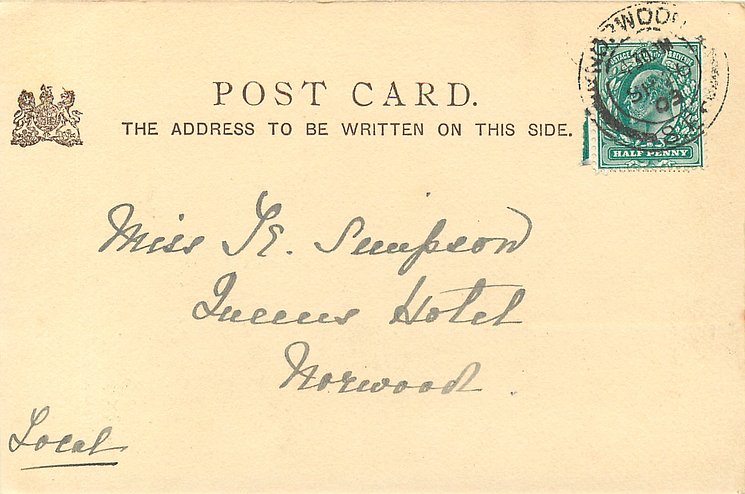 POST CARD.
THE ADDRESS TO BE WRITTEN ON THIS SIDE.
HALF PENNY
Miss J. E. Simpson
Queens Hotel
Norwood.
Local